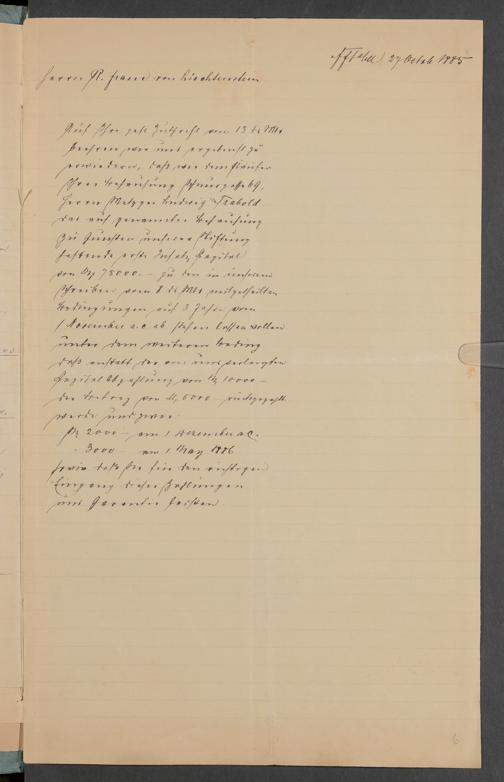 27 Octob 1885
Herrn R. Franz von Liechtenstein
Auf Ihre gefl. Zuschrift vom 13 ds Mts
beehren wir uns ergebenst zu
erwiedern, daß wir dem Käufer
Ihrer Behausung 69,
Herrn Metzger Ludwig
das auf genannter Behausung
zu Gunsten unserer Stiftung
haftende erste Insatz Capital
von M 75000.— zu den in unserem
Schreiben vom 8 ds Mts mitgetheilten
Bedingungen auf 3 Jahre vom
1 November a.c. ab stehen lassen wollen
unter dem weiteren Beding
daß anstatt der von uns verlangten
Capital Abzahlung von M 10000 —
der Betrag von M 5000 — rückgezahlt
werde und zwar
M 2000 — am 1 November a.c.
" 3000 — am 1 May 1886
sowie daß Sie für den richtigen
Eingang dieser Zahlungen
uns Garantie leisten
6